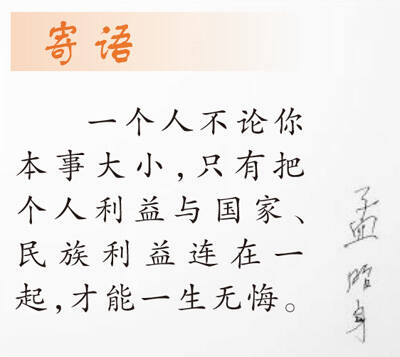 寄语
一个人不论你
本事大小，只有把
个人利益与国家、
民族利益连在一
起，才能一生无悔。